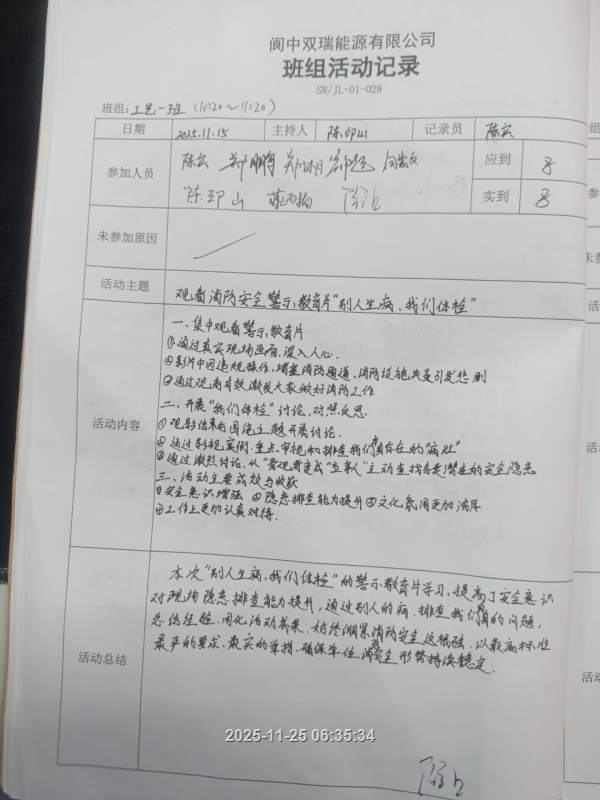 阆中双瑞能源有限公司
班组活动记录
SR/JL-01-028
班组: 工艺一班 (10:20~11:20)
日期 2025.11.15 主持人 陈邵山 记录员 陈宏
参加人员 陈宏 郑鹏 应到 8
陈邵山 实到 8
未参加原因
活动主题 观看消防安全警示教育片"别人生病、我们体检"
活动内容
一、集中观看警示教育片
①通过真实现场画面,深入人心.
②影片中因违规操作、堵塞消防通道、消防设施失灵引发悲剧
③通过观看有效激发大家做好消防工作
二、开展"我们体检"讨论,对照反思.
①观影结束后围绕主题开展讨论.
②通过影视实例,重点审视和排查我们身存在的"病灶"
③通过激烈讨论,从"旁观者变成"当事人"主动查找各类潜在的安全隐患
三、活动主要成效与收获
①安全意识增强 ②隐患排查能力提升 ③文化氛围更加浓厚
④工作上更加认真对待.
活动总结
本次"别人生病,我们体检"的警示教育片学习,提高了安全意识
对现场隐患排查能力提升,通过别人的病,排查我们身的问题,
总结经验、固化活动成果,始终绷紧消防安全这根弦,以最高标准
最严的要求、最实的举措,确保单位消防安全形势持续稳定.
2025-11-25 06:35:34